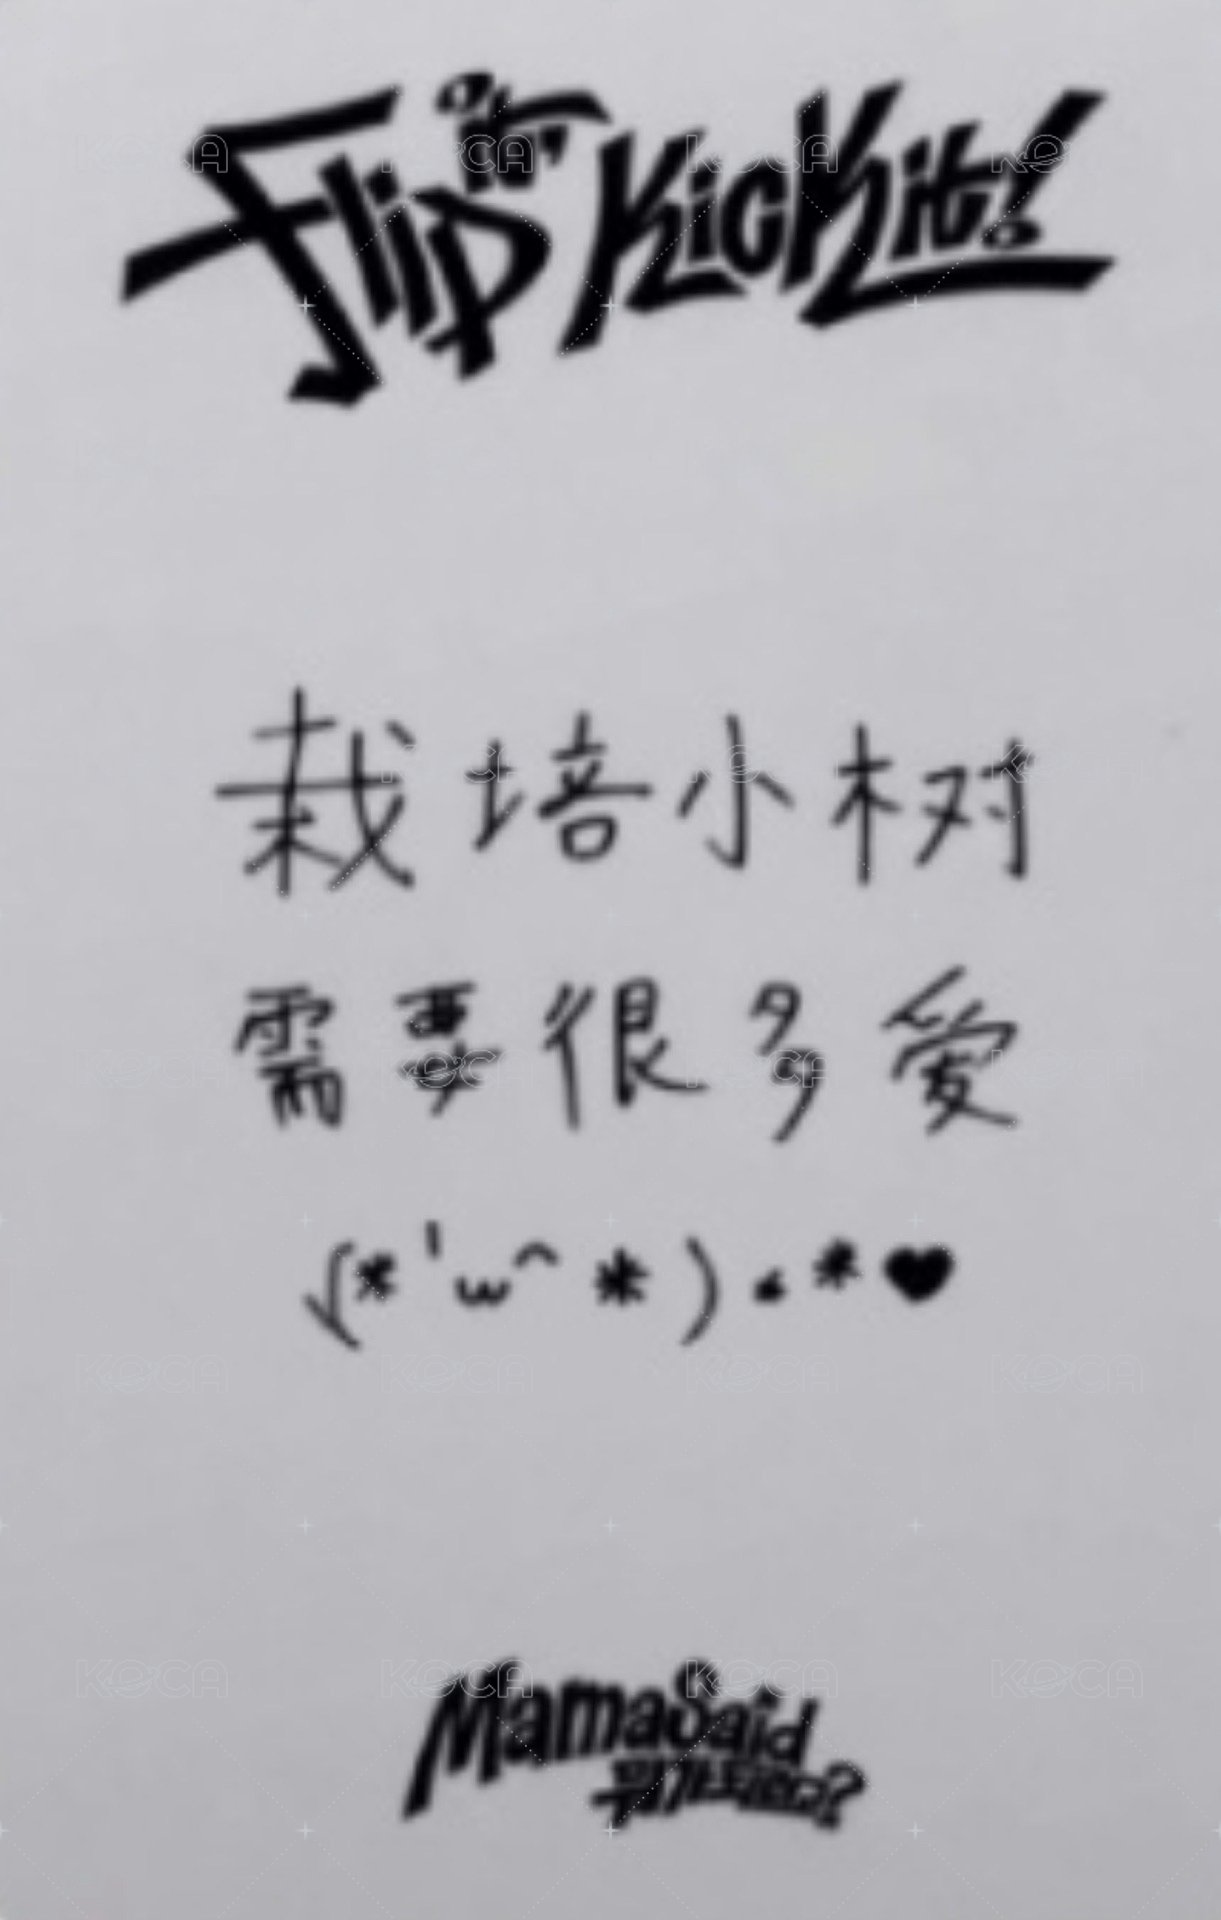 Flip it, Kick it!
栽培小树
需要很多爱
(*'ω^*).*♥
MamaSaid
뭐가되렌다?
KOCA KOCA KOCA KOCA